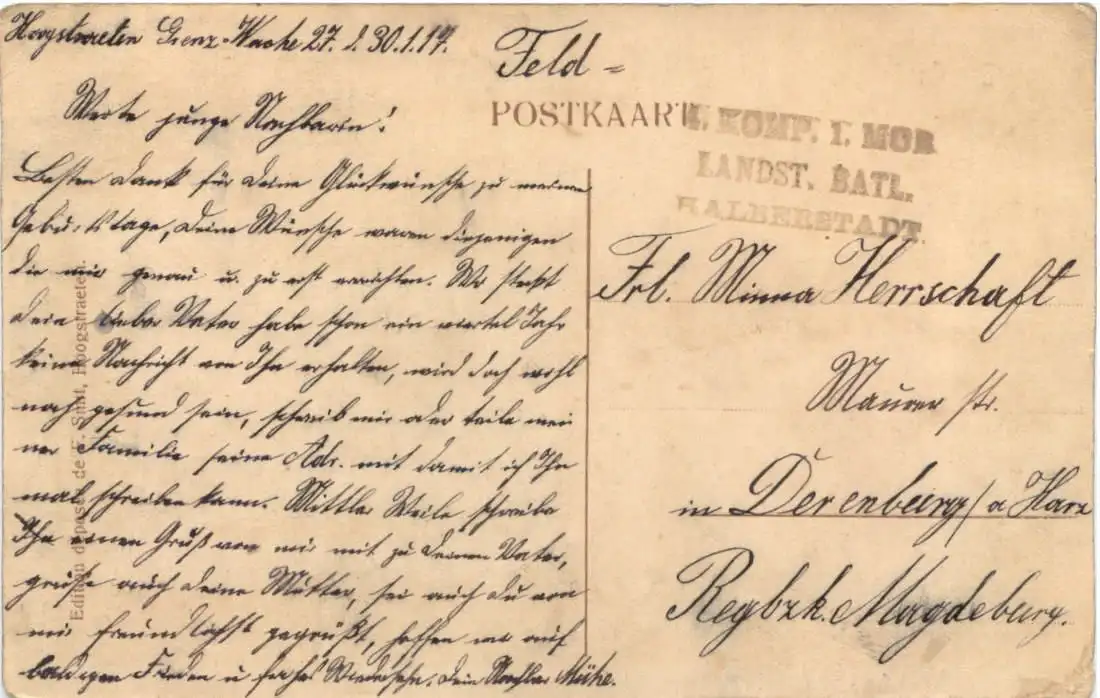 Hoogstraeten Grenz-Wache 27. d. 30.1.17.
Werte junge Nachbarin!
Besten Dank für Deine Glückwünsche zu meinem
Geburtstage, Deine Wünsche waren diejenigen
die mir genau u. zu erst erreichten. Wo steckt
Dein lieber Vater habe schon ein viertel Jahr
keine Nachricht von Ihn erhalten, wird doch wohl
noch gesund sein, schreib mir oder teile mei
ner Familie seine Adr. mit damit ich Ihn
mal schreiben kann. Mittler Weile schreibe
Ihn einen Gruß von mir mit zu Deinen Vater,
grüße auch Deine Mutter, sei auch Du von
mir freundlichst gegrüßt, hoffen wir auf
baldigen Frieden u frohes Wiedersehn. Dein Nachbar Mühe.
Edition dépose de F. Smit, Hoogstraeten.
Feld =
POSTKAART
KOMP. 1. MOB
LANDST. BATL.
HALBERSTADT.
Frl. Minna Herrschaft
Maurer str.
in Derenburg / a Harz
Regbzk. Magdeburg.